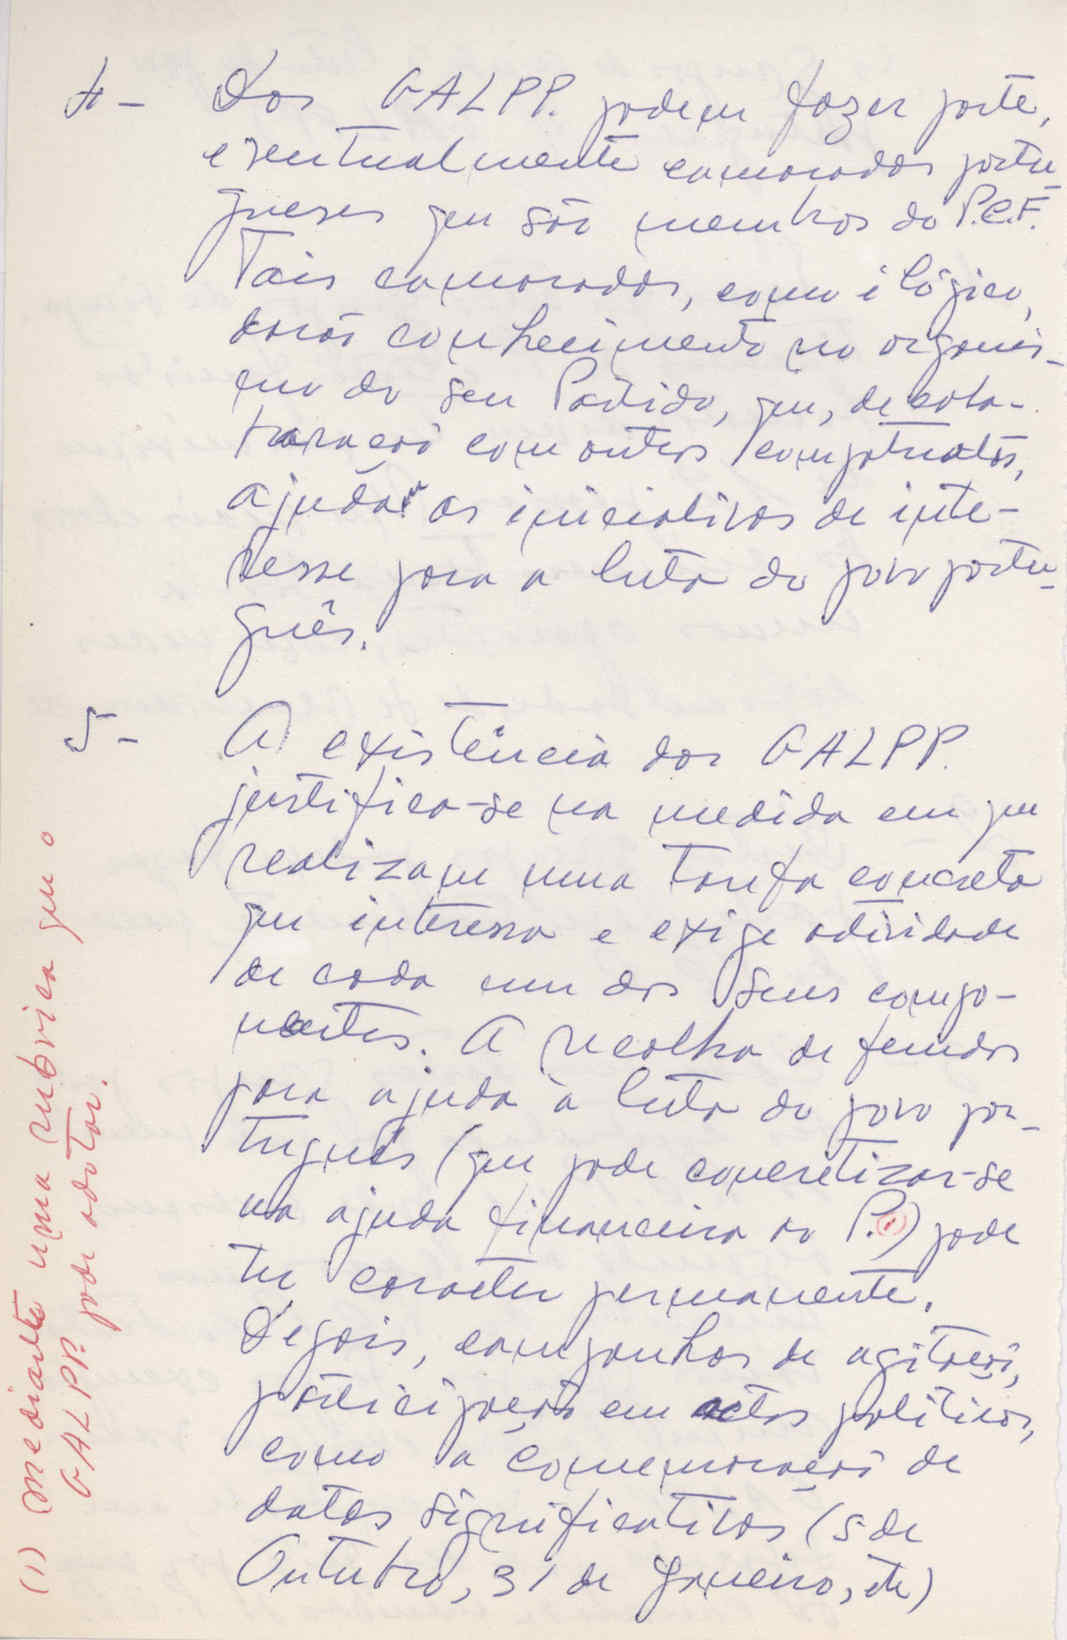 4- Dos GALPP. podem fazer parte,
eventualmente camaradas portu-
gueses que são membros do P.C.F.
Tais camaradas, como é lógico,
darão conhecimento no organis-
mo do seu Partido, que, de cola-
boração com outros compatriotas,
ajudam as iniciativas de inte-
resse para a luta do povo portu-
guês.
5- A existência dos GALPP.
justifica-se na medida em que
realizam uma tarefa concreta
que interessa e exige actividade
de cada um dos seus compo-
nentes. A recolha de fundos
para ajuda à luta do povo por-
tuguês (que pode concretizar-se
na ajuda financeira ao P.(1)) pode
ter caracter permanente.
Depois, campanhas de agitação,
participação em actos políticos,
como a comemoração de
datas significativas (5 de
Outubro, 31 de Janeiro, etc)
(1) mediante uma rubrica que o
GALPP. pode adotar.